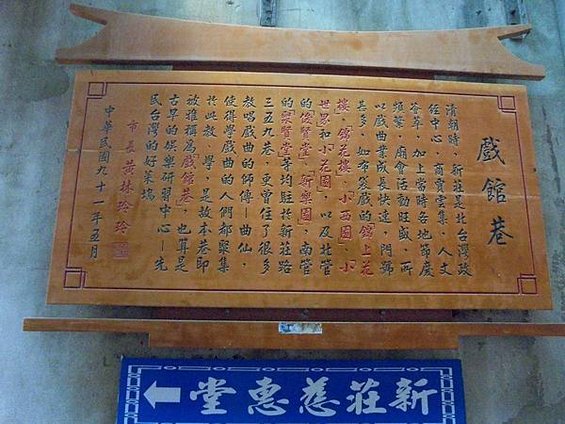 戲館巷
清朝時，新莊是北台灣政
經中心，商賈雲集，人文
薈萃，加上當時各地節慶
頻繁，廟會活動旺盛，所
以戲曲業成長快速，門號
甚多，如布袋戲的「錦上花
樓」「錦花樓」「小西園」「小
世界和「小花園」，以及北管
的「俊賢堂」「新樂園」，南管
的「聚賢堂」等均駐於新莊路
三五九巷，更曾住了很多
教唱戲曲的師傅—曲仙，
使得學戲曲的人們都聚集
於此教、學，是故本巷即
被雅稱為「戲館巷」，也算是
古早的娛樂研習中心—先
民台灣的好萊塢
市長黃林玲玲
中華民國九十一年五月
新莊慈惠堂